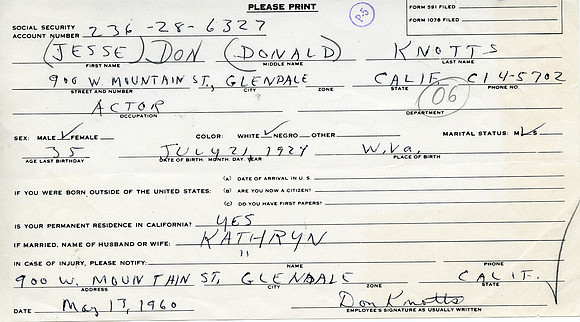 PLEASE PRINT
FORM 591 FILED
FORM 1078 FILED
P-5
SOCIAL SECURITY ACCOUNT NUMBER 236-28-6327
(JESSE) DON (DONALD) KNOTTS
FIRST NAME MIDDLE NAME LAST NAME
900 W. MOUNTAIN ST., GLENDALE CALIF. CI 4-5702
STREET AND NUMBER CITY ZONE STATE PHONE NO.
ACTOR 06
OCCUPATION DEPARTMENT
SEX: MALE ✓ FEMALE COLOR: WHITE ✓ NEGRO OTHER MARITAL STATUS: M ✓ S
35 JULY 21, 1924 W. Va.
AGE LAST BIRTHDAY DATE OF BIRTH: MONTH, DAY, YEAR PLACE OF BIRTH
(A) DATE OF ARRIVAL IN U.S.
IF YOU WERE BORN OUTSIDE OF THE UNITED STATES: (B) ARE YOU NOW A CITIZEN?
(C) DO YOU HAVE FIRST PAPERS?
IS YOUR PERMANENT RESIDENCE IN CALIFORNIA? YES
IF MARRIED, NAME OF HUSBAND OR WIFE: KATHRYN
IN CASE OF INJURY, PLEASE NOTIFY: "
NAME PHONE
900 W. MOUNTAIN ST., GLENDALE CALIF.
ADDRESS CITY ZONE STATE
DATE May 13, 1960 Don Knotts
EMPLOYEE'S SIGNATURE AS USUALLY WRITTEN